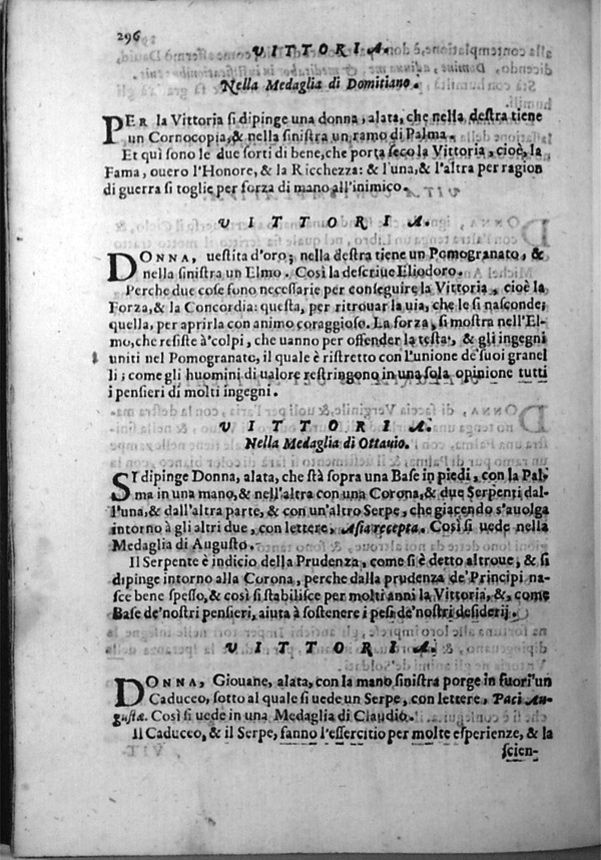 296
VITTORIA.
Nella Medaglia di Domitiano.
PER la Vittoria si dipinge una donna, alata, che nella destra tiene
un Cornocopia, & nella sinistra un ramo di Palma.
Et quì sono le due sorti di bene, che porta seco la Vittoria, cioè, la
Fama, ouero l'Honore, & la Ricchezza: & l'una, & l'altra per ragion
di guerra si toglie per forza di mano all'inimico.
VITTORIA.
DONNA, uestita d'oro; nella destra tiene un Pomogranato, &
nella sinistra un Elmo. Così la descriue Eliodoro.
Perche due cose sono necessarie per conseguire la Vittoria, cioè la
Forza, & la Concordia: questa, per ritrouar la uia, che le si nasconde;
quella, per aprirla con animo coraggioso. La forza, si mostra nell'El-
mo, che resiste à'colpi, che uanno per offender la testa, & gli ingegni
uniti nel Pomogranato, il quale è ristretto con l'unione de'suoi granel
li; come gli huomini di ualore restringono in una sola opinione tutti
i pensieri di molti ingegni.
VITTORIA.
Nella Medaglia di Ottauio.
SI dipinge Donna, alata, che stà sopra una Base in piedi, con la Pal-
ma in una mano, & nell'altra con una Corona, & due Serpenti dal-
l'una, & dall'altra parte, & con un'altro Serpe, che giacendo s'auolga
intorno à gli altri due, con lettere, Asia recepta. Così si uede nella
Medaglia di Augusto.
Il Serpente è indicio della Prudenza, come si è detto altroue, & si
dipinge intorno alla Corona, perche dalla prudenza de'Principi na-
sce bene spesso, & così si stabilisce per molti anni la Vittoria, &, come
Base de'nostri pensieri, aiuta à sostenere i pesi de'nostri desiderij.
VITTORIA.
DONNA, Giouane, alata, con la mano sinistra porge in fuori un
Caduceo, sotto al quale si uede un Serpe, con lettere, Paci Au-
gustæ. Così si uede in una Medaglia di Claudio.
Il Caduceo, & il Serpe, sanno l'essercitio per molte esperienze, & la
scien-